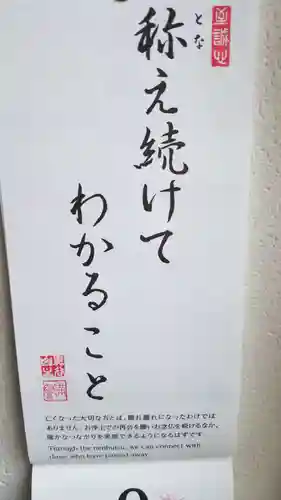 称え続けて
とな
わかること
亡くなった大切な方とは、離れ離れになったわけでは
ありません。お浄土での再会を願いお念仏を続けるなか、
確かなつながりを実感できるようになるはずです。
Through the nembutsu, we can connect with
those who have passed away.